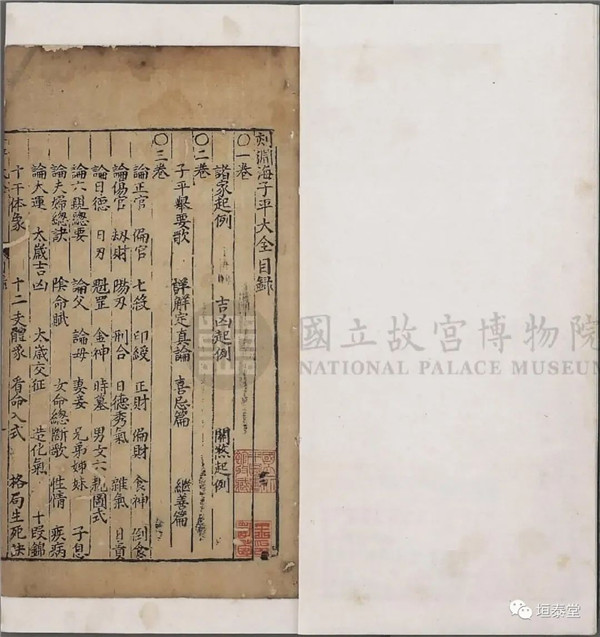 刻淵海子平大全目錄
〇一卷
諸家起例 吉凶起例 關煞起例
〇二卷
子平舉要歌 詳解定真論 喜忌篇 繼善篇
〇三卷
論正官 偏官 七殺 印綬 正財 偏財 食神 倒食
論傷官 刼財 陽刃 刑合 日德秀氣 雜氣 日貴
論日德 日刃 魁罡 金神 時墓 男女六親圖式
論六親總要 論父 論母 妻妾 兄弟姊妹 子息
論夫婦總訣 陰命賦 女命總斷歌 性情 疾病
論大運 太歲吉凶 太歲交征 造化氣 十段錦
十干体象 十二支體象 看命入式 格局生死
國立故宮博物院
NATIONAL PALACE MUSEUM
垣泰堂